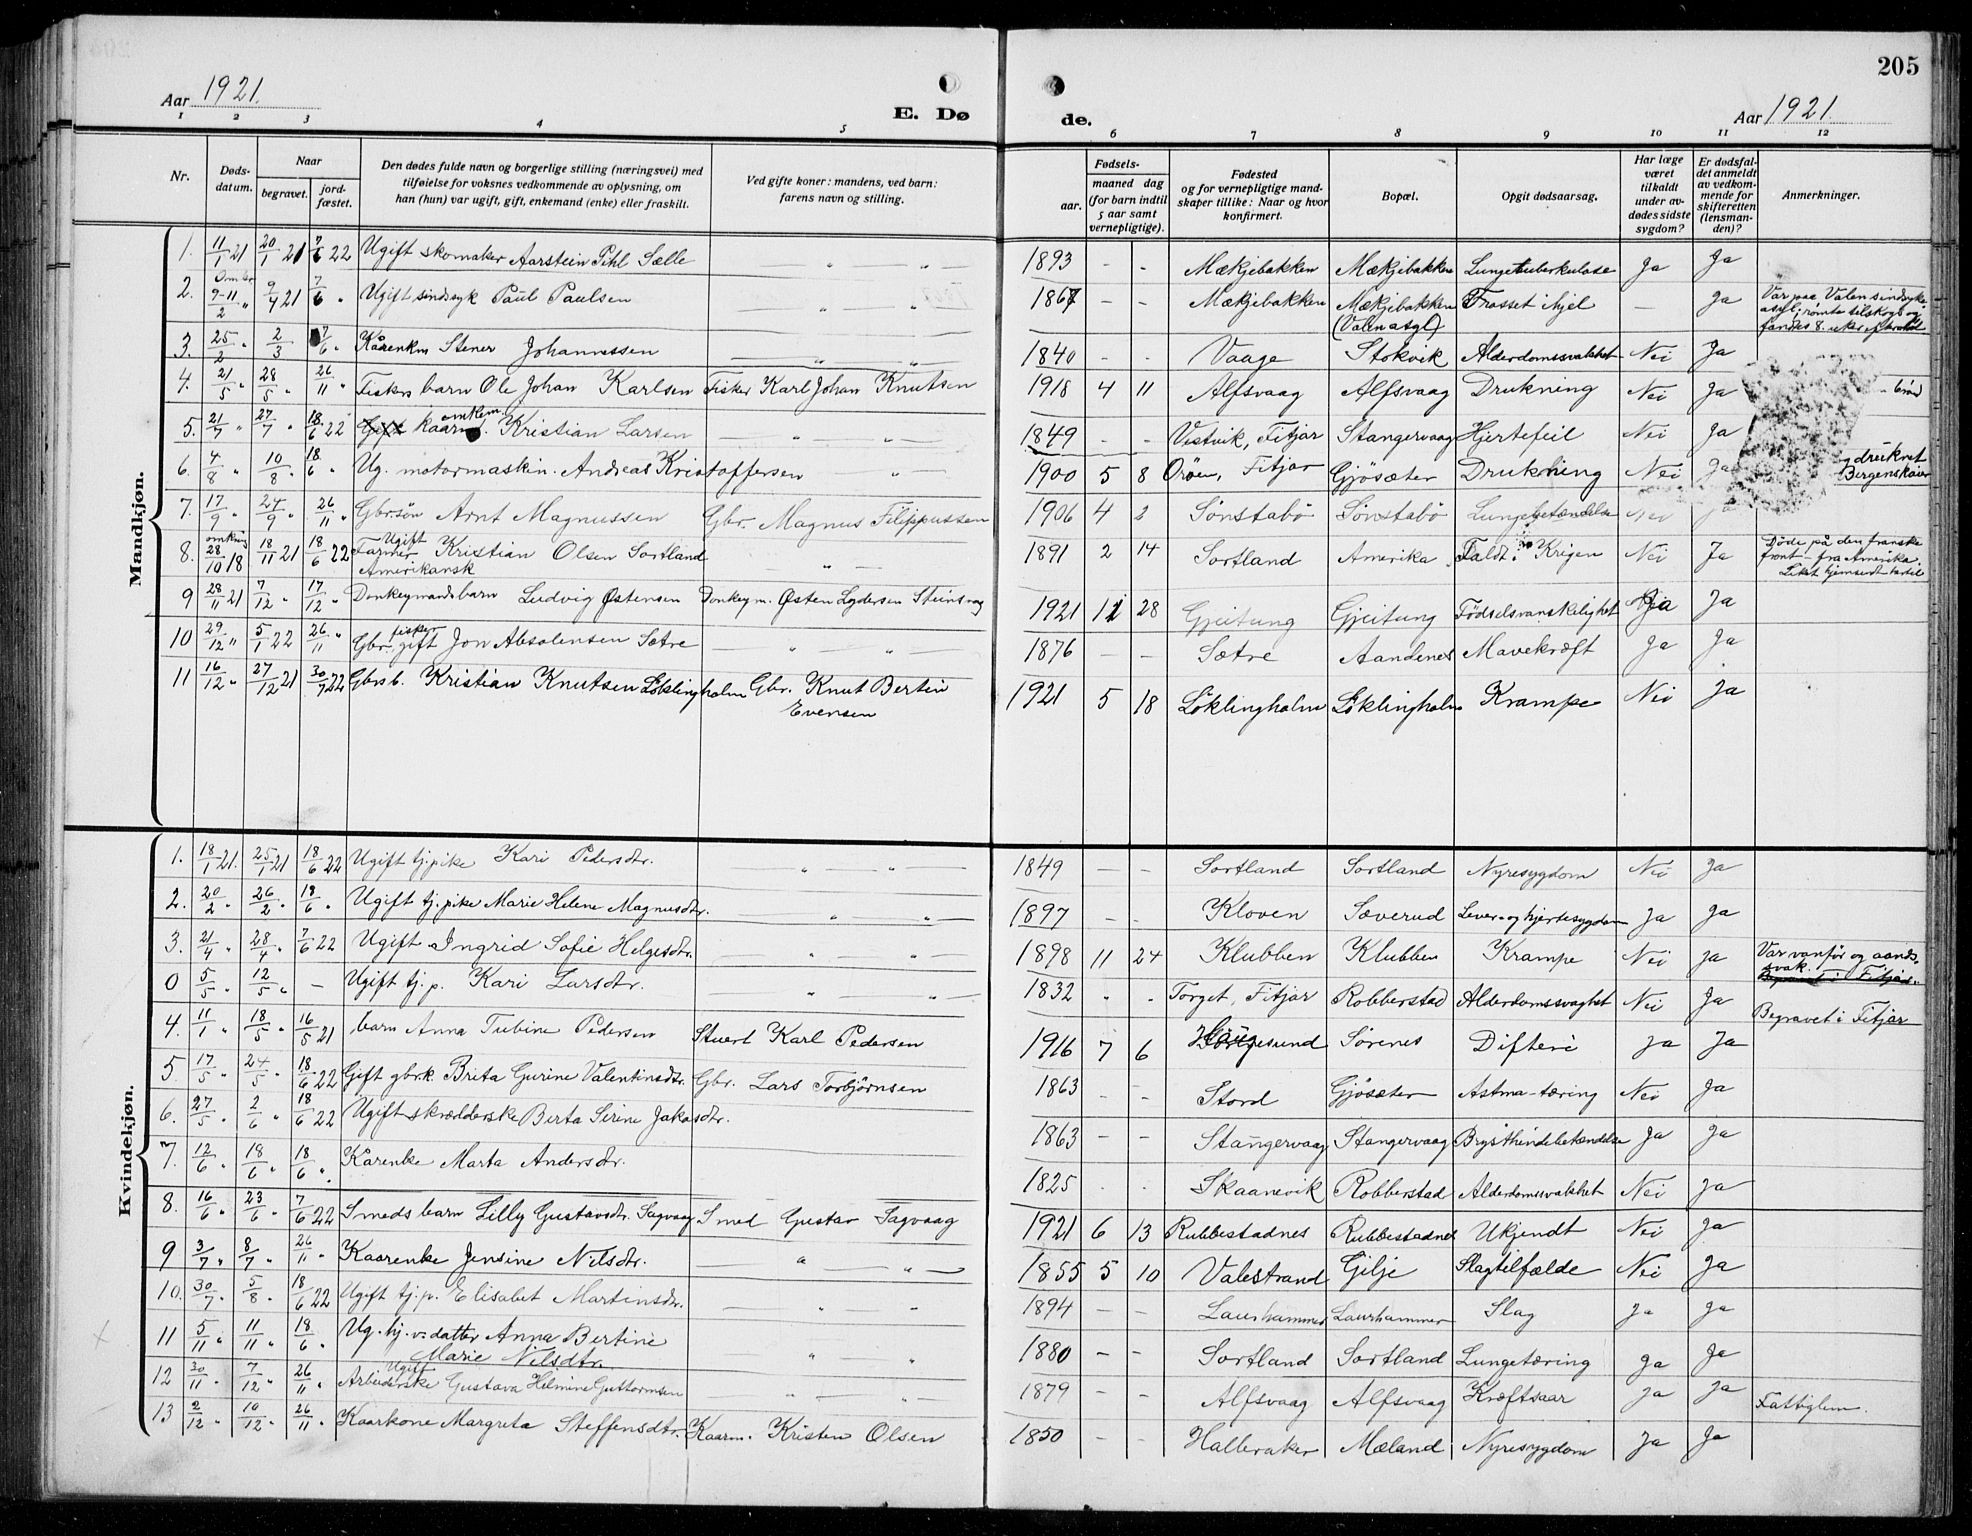 205
Aar 1921.
E. Dø de.
Aar 1921.
1 2 3 4 5 6 7 8 9 10 11 12
Nr. Døds-datum. Naar begravet. jord-fæstet. Den dødes fulde navn og borgerlige stilling (næringsvei) med tilføielse for voksnes vedkommende av oplysning, om han (hun) var ugift, gift, enkemand (enke) eller fraskilt. Ved gifte koner: mandens, ved barn: farens navn og stilling. Fødsels- aar. maaned dag (for barn indtil 5 aar samt vernepligtige). Fødested og for vernepligtige mandskaper tillike: Naar og hvor konfirmert. Bopæl. Opgit dødsaarsag. Har læge været tilkaldt under avdødes sidste sygdom? Er dødsfaldet anmeldt av vedkommende for skifteretten (lensmanden)? Anmerkninger.
Mandkjøn.
1. 11/1 21 20/1 21 7/6 22 Ugift skomaker Aarstein Pihl Sælle — " " — 1893 - - Mækjebakken Mækjebakken Lungetuberkulose Ja Ja
2. Omkr 9-11/2 " 9/4 21 7/6 " Ugift sindsyk Paul Paulsen — " " 1867 - - Mækjebakken Mækjebakken (Valen asyl) Frosset ihjel — Ja Var paa Valen sindsyke asyl; rømte tilskogs og fandes 8. uker efter
3. 25/2 " 2/3 7/6 " Kårenkm Stener Johannessen — " " — 1840 - - Vaage Stokvik Alderdomssvakhet Nei Ja
4. 21/5 " 28/5 " 26/11 " Fiskers barn Ole Johan Karlsen Fisker Karl Johan Knutsen 1918 4 11 Alfsvaag Alfsvaag Drukning Nei Ja
5. 21/7 " 27/7 " 18/6 22 kaarm. Kristian Larsen — " " — 1849 - - Vestvik, Fitjar Stangervaag Hjertefeil Nei Ja
6. 4/8 " 10/8 " 18/6 " Ug. motormaskin. Andreas Kristoffersen " — 1900 5 8 Orøen, Fitjar Gjøsæter Drukning Nei Ja druknet
7. 17/9 " 24/9 " 26/11 " Gbr.søn Arnt Magnussen Gbr. Magnus Filippussen 1906 4 2 Sønstabø Sønstabø Lungebetændelse Nei Ja
8. omkring 28/10 18 18/11 21 18/6 22 Ugift Farmer Kristian Olsen Sortland Amerikansk — " — 1891 2 14 Sortland Amerika Faldt i Krigen Nei Ja Døde på den franske front - fra Amerika. Liket hjemsendt hertil
9 28/11 21 7/12 " 17/12 " Donkeymands barn Ludvig Østensen Donkeym. Østen Lydersen Steinsvag 1921 11 28 Gjeitung Gjeitung Fødselsvanskelighet Ja Ja
10 29/12 " 5/1 22 26/11 " Gbr. fisker gift Jon Absalonsen Sætre — " " — 1876 — — Sætre Aandenes Mavekræft Ja Ja
11 16/12 " 27/12 21 30/7 22 Gbrsb. Kristian Knutsen Løklingholm Gbr. Knut Bertin Evensen 1921 5 18 Løklingholm Løklingholm Krampe Nei Ja
Kvindekjøn.
1. 18/1 21. 25/1 21 18/6 22 Ugift tj.pike Kari Pedersdtr. — " " — 1849 - - Sortland Sortland Nyresygdom Nei Ja
2. 20/2 " 26/2 " 18/6 " Ugift tj.pike Marie Helene Magnusdtr. — " " — 1897 - - Kloven Sæverud Lever- og hjertesygdom Ja Ja
3. 21/4 " 28/4 " 7/6 22 Ugift Ingrid Sofie Helgesdtr. — " " — 1898 11 24 Klubben Klubben Krampe Nei Ja Var vanfør og aands-svak.
0 5/5 " 12/5 " — Ugift tj. p. Kari Larsdtr. — " " — 1832 " - Torget, Fitjar Robberstad Alderdomssvaghet Nei Ja Begravet i Fitjar
4. 11/1 " 18/5 " 16/5 21 barn Anna Tubine Pedersen Stuert Karl Pedersen 1916 7 6 Haugesund Sørenes Difteri Ja Ja
5 17/5 " 24/5 " 18/6 22 Gift gbrk. Brita Gurine Valentinsdtr. Gbr. Lars Torbjørnsen 1863 Stord Gjøsæter Astma-tæring Nei Ja
6. 27/5 " 2/6 " 18/6 22 Ugift skrædderske Berta Serine Jakobsdtr. 1863 - - Stangervaag Stangervaag Brysthindebetændelse Ja Ja
7. 12/6 " 18/6 " 18/6 " Kårenke Marta Andersdtr. 1825 - - Skaanevik Robberstad Alderdomssvakhet Nei Ja
8. 16/6 " 23/6 " 7/6 22 Smeds barn Lilly Gustavsdtr. Sagvaag Smed Gustav Sagvaag 1921 6 13 Rubbestadnes Rubbestadnes Ukjendt Nei Ja
9 3/7 " 8/7 " 26/11 " Kaarenke Jensine Nilsdtr. — " " — 1855 5 10 Valestrand Gilje Slagtilfælde Nei Ja
10. 30/7 " 5/8 " 18/6 22 Ugift tj. p. Elisabet Martinsdtr. — " " — 1894 — — Laurhammer Laurhammer Slag Ja Ja
11 5/11 " 11/11 " 18/6 " Ug. hj. v. datter Anna Bertine Marie Nilsdtr. — " " 1880 — - Sortland Sortland Lungetæring Ja Ja
12 30/11 " 7/12 " 26/11 " Ugift Arbeiderske Gustava Helmine Guttormsen — " " — 1879 - - Alfsvaag Alfsvaag Kræftsaar Ja Ja Fattiglem.
13 2/12 " 10/12 " 26/11 " Kaarkone Margreta Steffensdtr. Kaarm. Kristen Olsen 1850 - - Halleraker Mæland Nyresygdom Ja Ja